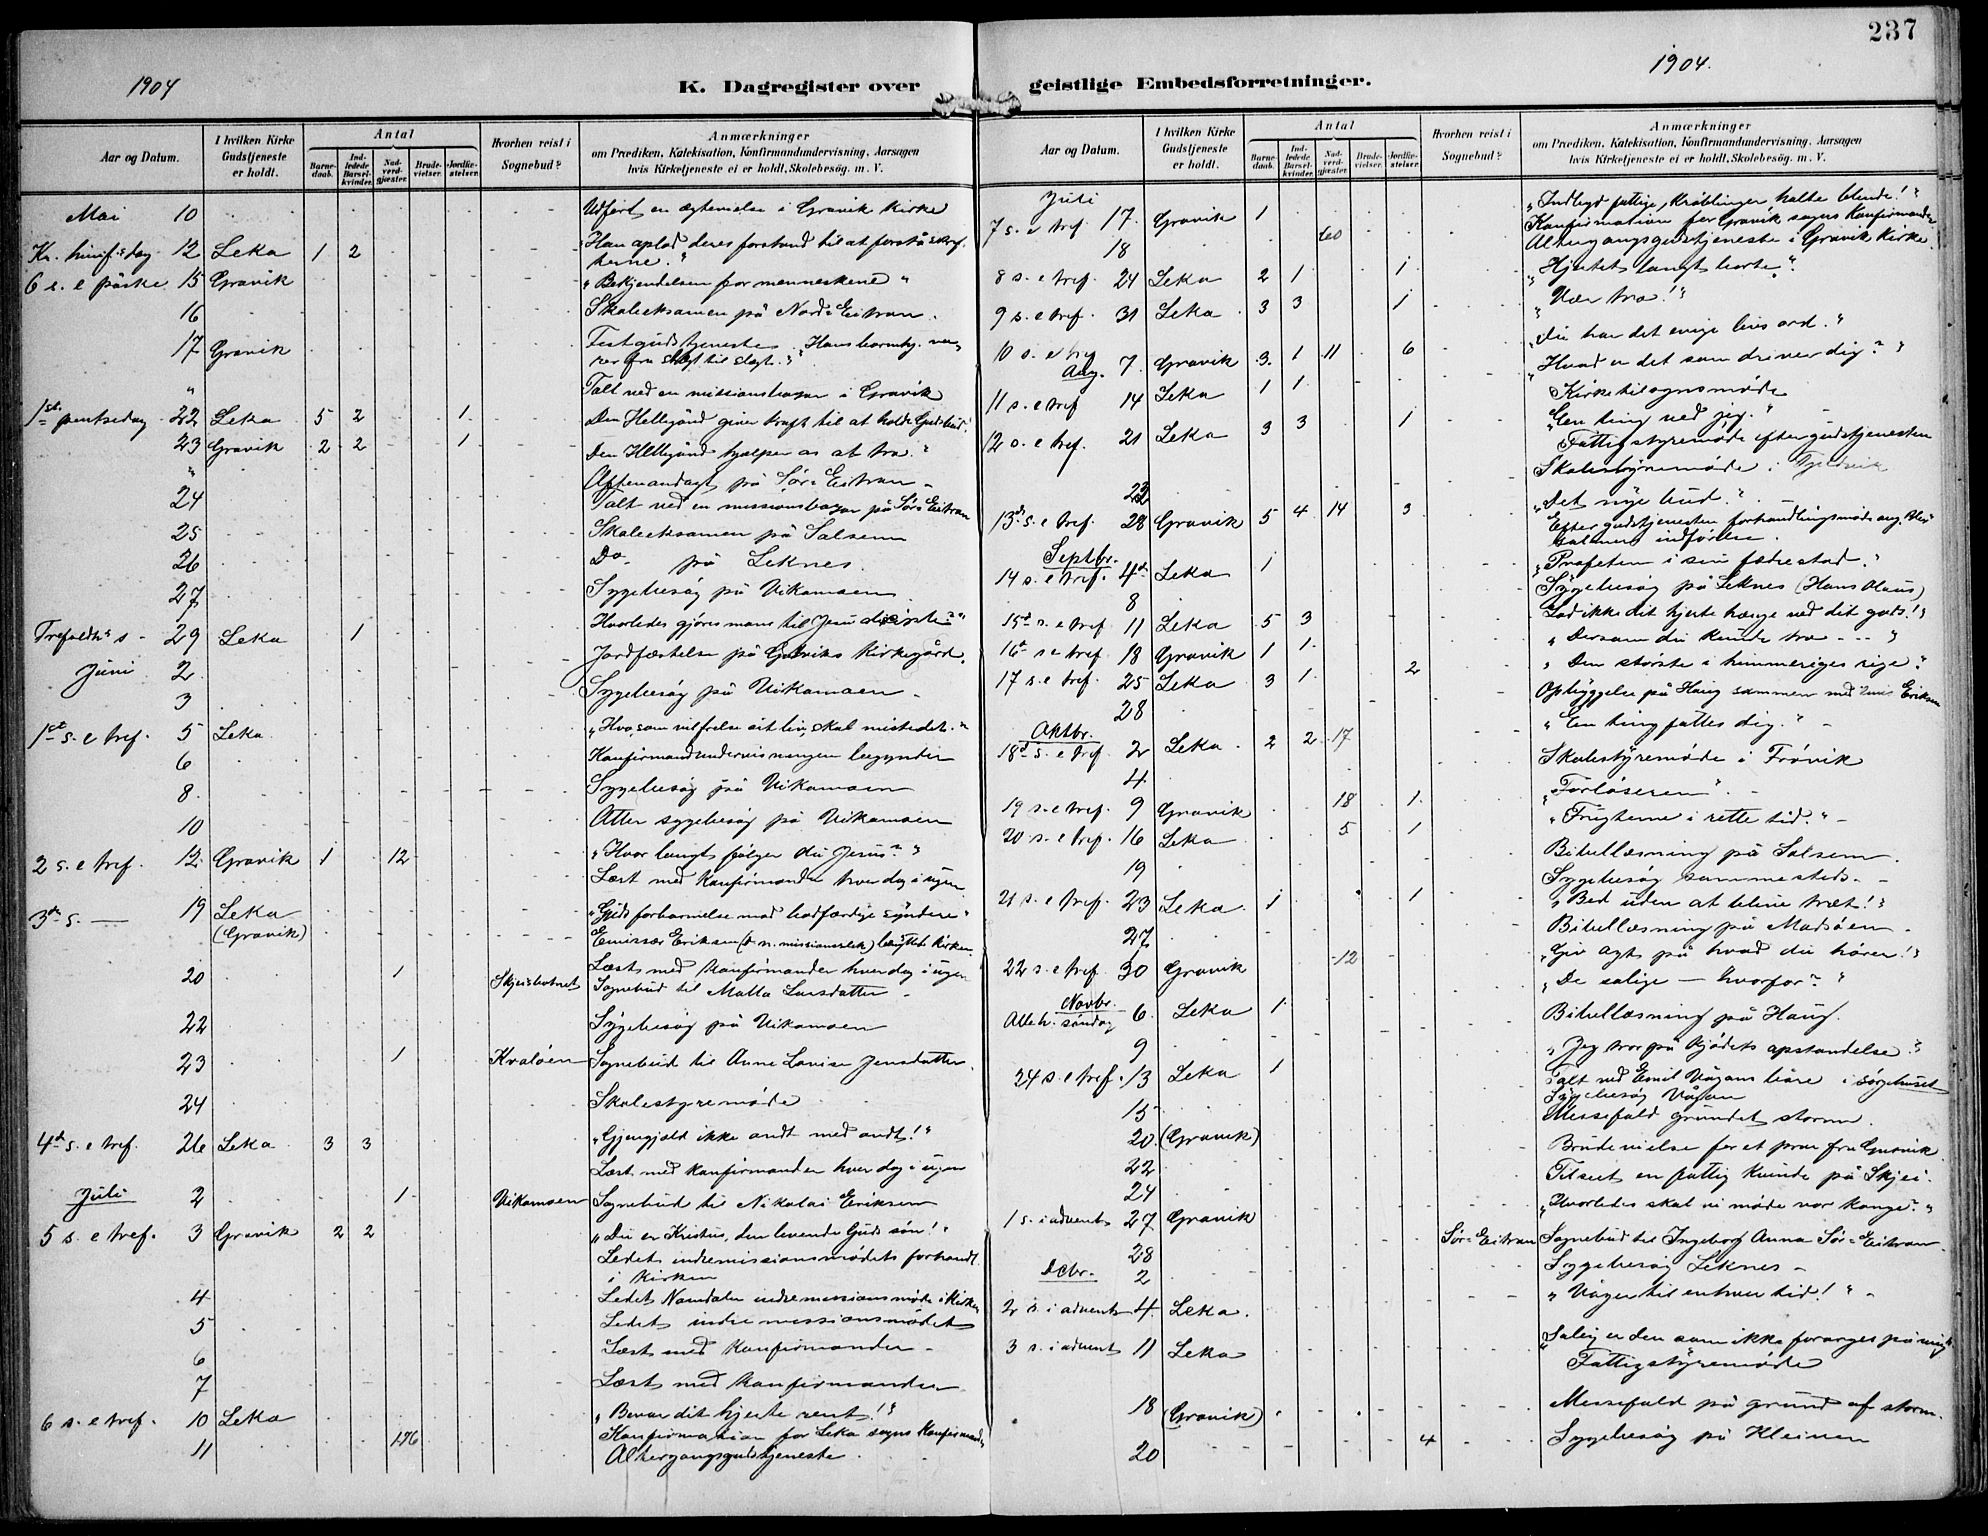 237
1904
K. Dagregister over
geistlige Embedsforretninger.
1904.
Aar og Datum.
I hvilken Kirke Gudstjeneste er holdt.
Antal
Barnedaab.
Indledede Barselkvinder.
Nadverdgjæster.
Brudevielser.
Jordfæstelser.
Hvorhen reist i Sognebud?
Anmærkninger
om Prædiken, Katekisation, Konfirmandundervisning, Aarsagen
hvis Kirketjeneste ei er holdt, Skolebesøg. m. V.
Mai 10 Udført en ægtevielse i Gravik Kirke
Kr. himf. dag 12 Leka 1 2 "Han oplod deres forstand til at forstå skrifterne."
6 s. e påske 15 Gravik "Bekjendelsen for menneskene"
16 Skoleeksamen på Nord-Eitran.
17 Gravik Festgudstjeneste.
rer fra slægt til slægt."
" Talt ved en missionsbasar i Gravik
1st pintsedag 22 Leka 5 2 1 Den Helligånd giver kraft til at holde Guds bud.
23 Gravik 2 2 1 Den Helligånd hjælper os at tro."
" Aftenandagt på Sør-Eitran
24 Talt ved en missionsbasar på Sør-Eitran
25 Skoleeksamen på Salsem
26 Do på Leknes.
27 Sygebesøg på Vikamoen
Trefoldth. s. 29 Leka 1 Hvorledes gjøres mans til Jesu disciple?"
Juni 2 Jordfæstelse på Graviks Kirkegård.
3 Sygebesøg på Vikamoen
1st s. e tref. 5 Leka "Hvo, som vil frelse sit liv, skal miste det."
6 Konfirmandundervisningen begynder
8 Sygebesøg på Vikamoen
10 Atter sygebesøg på Vikamoen
2 s. e tref. 12 Gravik 1 12 "Hvor langt følger du Jesus?"
Læst med konfirmander hver dag i ugen
3de s. — 19 Leka "Guds forbarmelse mod bodfærdige syndere"
(Gravik) Emissær Eriksen
20 1 Læst med konfirmander hver dag i ugen
Skjeisbotnet Sognebud til Malla Larsdatter
22 Sygebesøg på Vikamoen
23 1 Kvaløen Sognebud til Anne Lovise Jensdatter
24 Skolestyremøde
4d s. e tref. 26 Leka 3 3 "Gjengjæld ikke ondt med ondt!"
Læst med konfirmander hver dag i ugen
Juli 2 1 Vikamoen Sognebud til Nikolai Eriksen
5 s. e tref. 3 Gravik 2 2 "Du er Kristus, den levende Guds søn!"
Ledet indremissionsmødets forhandl.
i kirken
4 Ledet Namdalen indremissionsmøde i Kirken
5 Ledet indremissionsmødet
6 Læst med konfirmander
7 Læst med konfirmander
6 s. e tref. 10 Leka "Bevar dit hjerte rent!"
Konfirmation for Leka sogns Konfirmander
11 176 Altergangsgudstjeneste
Aar og Datum.
I hvilken Kirke Gudstjeneste er holdt.
Antal
Barnedaab.
Indledede Barselkvinder.
Nadverdgjæster.
Brudevielser.
Jordfæstelser.
Hvorhen reist i Sognebud?
Anmærkninger
om Prædiken, Katekisation, Konfirmandundervisning. Aarsagen
hvis Kirketjeneste ei er holdt, Skolebesøg. m. V.
Juli
7 s. e tref. 17. Gravik 1 "Indbyd fattige, krøblinger halte blinde!"
Konfirmation for Gravik sogns Konfirmander
18 Altergangsgudstjeneste i Gravik Kirke
8 s. e tref. 24 Leka 2 1 1 "Hjertet langt borte"
9 s. e tref. 31 Leka 3 3 1 "Vær tro!"
"Du har det evige livs ord."
10 s. e tref Aug. 7 Gravik 3 1 11 6 "Hvad er det som driver dig?"
Kirketilsynsmøde
11 s. e tref 14 Leka 1 1 "Een ting ved jeg."
12 s. e tref. 21 Leka 3 3 1 Fattigstyremøde efter gudstjenesten
23 Skolestyremøde i
13de s. e tref. 28 Gravik 5 4 14 3 "Det nye bud."
Efter gudstjenesten forhandlingsmøde
salmers indførelse.
Septbr.
14 s. e tref. 4d Leka 1 "Profeten i sin fædrestad."
8 Sygebesøg på Leknes (Hans Olaus)
15d s. e tref 11 Leka 5 3 Lad ikke dit hjerte hænge ved dit gods!"
16d s. e tref 18 Gravik 1 1 "Dersom du kunde tro - - -"
17 s. e tref. 25 Leka 3 1 2 "Den største i himmeriges rige."
28 Opbyggelse på Haug sammen med Eriksen
Oktbr.
18d s. e tref. 2 Leka 2 2 17 "En ting fattes dig."
4 Skolestyremøde i Frøvik
19 s. e tref. 9 Gravik 18 1 "Forløseren"
20 s. e tref. 16 Leka 5 1 "Frugterne i rette tid."
19 Bibellæsning på Salsem.
Sygebesøg sammesteds.
21 s. e tref. 23 Leka 1 1 "Bed uden at blive træt!"
27 Bibellæsning på Madsøen
22 s. e tref. 30 Gravik 12 "Giv agt på hvad du hører!"
Novbr.
Alleh. søndag 6. Leka 1 "De salige — hvorfor?"
9 Bibellæsning på Haug.
24 s. e tref. 13 Leka 1 "Jeg tror på kjødets opstandelse."
15 Talt ved Emil Vågans båre i sørgehuset
Sygebesøg Vågan
20 (Gravik) Messefald grundet storm.
22 Brudevielse for et par fra Gravik
24 Tilseet en fattig kvinde på Skjei.
1 s. i advent 27 Gravik "Hvorledes skal vi møde vor konge?"
28 Sør-Eitran Sognebud til Ingeborg Anna Sør-Eitran
Decbr. 2 Sygebesøg Leknes
2 s. i advent 4 Leka. "Våger til enhver tid!"
3 s. i advent 11 Leka "Salig er den som ikke forarges på mig"
Fattigstyremøde
18 (Gravik) Messefald på grund af storm.
20 4 Sygebesøg på Kleinen